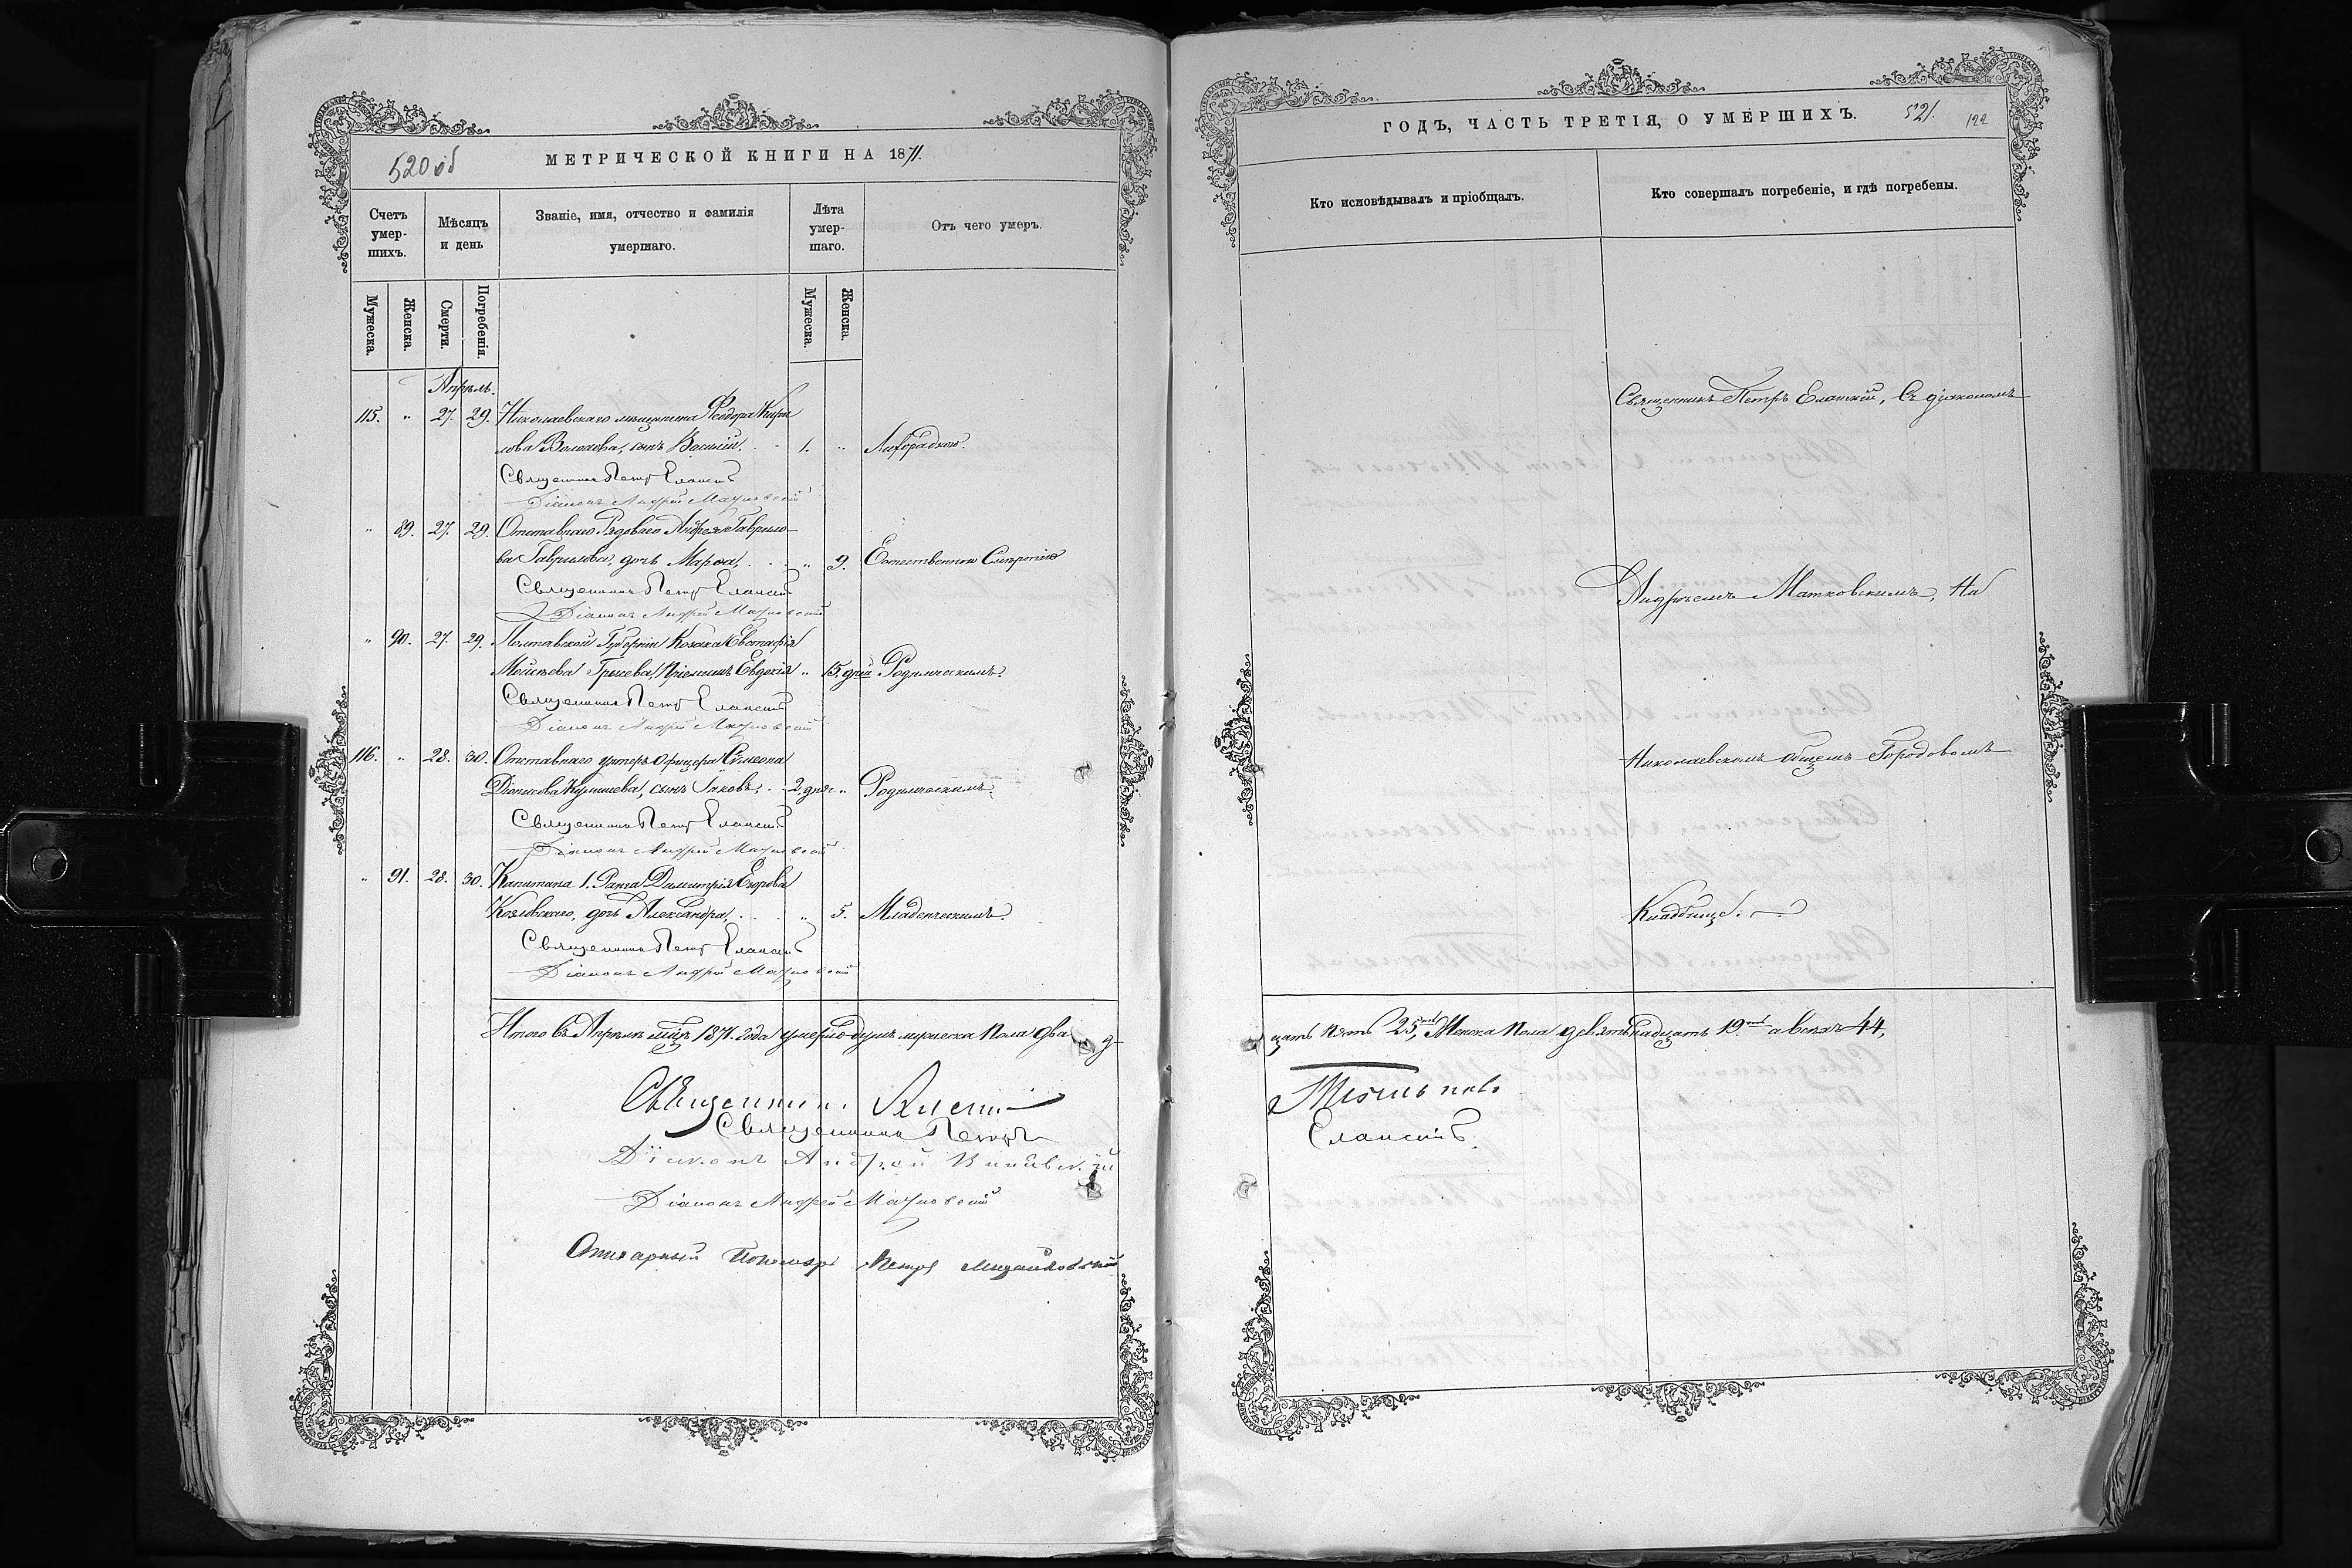 520 об
МЕТРИЧЕСКОЙ КНИГИ НА 1871.
Счетъ умер-шихъ.
Мѣсяцъ и день
Званіе, имя, отчество и фамилія умершаго.
Лѣта умер-шаго.
Отъ чего умеръ.
Мужеска.
Женска.
Смерти.
Погребенія.
Мужеска.
Женска.
Апрѣль.
115. " 27. 29. Николаевскаго мѣщанина Феодора Кири
лова Волохова, сынъ Василій. 1. " Лихорадкою.
Священникъ Петръ Еланскій
Діаконъ Андрей Матковскій
" 89. 27. 29. Отставнаго Рядоваго Андрея Гаврило
ва Гаврилова, дочь Марѳа, " 9. Естественною Смертію
Священникъ Петръ Еланскій
Діаконъ Андрей Матковскій
" 90. 27. 29. Полтавской Губерніи Козака Евстафія
Моисѣева Гришева, Пріемышъ Евдокія " 15. дней Родимческимъ.
Священникъ Петръ Еланскій
Діаконъ Андрей Матковскій
116. " 28. 30. Отставнаго унтеръ офицера Симеона
Діонисова сынъ Іаковъ, 2. дня " Родимческимъ.
Священникъ Петръ Еланскій
Діаконъ Андрей Матковскій
" 91. 28. 30. Капитана 1. Ранга Димитрія Егорова
Козловскаго, дочь Александра, " 5. Младенческимъ.
Священникъ Петръ Еланскій
Діаконъ Андрей Матковскій
Итого въ Апрѣлѣ мцѣ 1871. года умерло душъ мужеска пола два
Священникъ
Священникъ Петръ
Діаконъ Андрей
Діаконъ Андрей Матковскій
Стихарный Пономарь Петръ
ГОДЪ, ЧАСТЬ ТРЕТІЯ, О УМЕРШИХЪ.
521.
122
Кто исповѣдывалъ и пріобщалъ.
Кто совершалъ погребеніе, и гдѣ погребены.
Священникъ Петръ Еланскій, Съ діакономъ
Андреемъ Матковскимъ, На
Николаевскомъ общемъ Городовомъ
Кладбищѣ.
цать пять 25, Женска пола девятьнадцать 19 а всѣхъ 44,
Еланскій